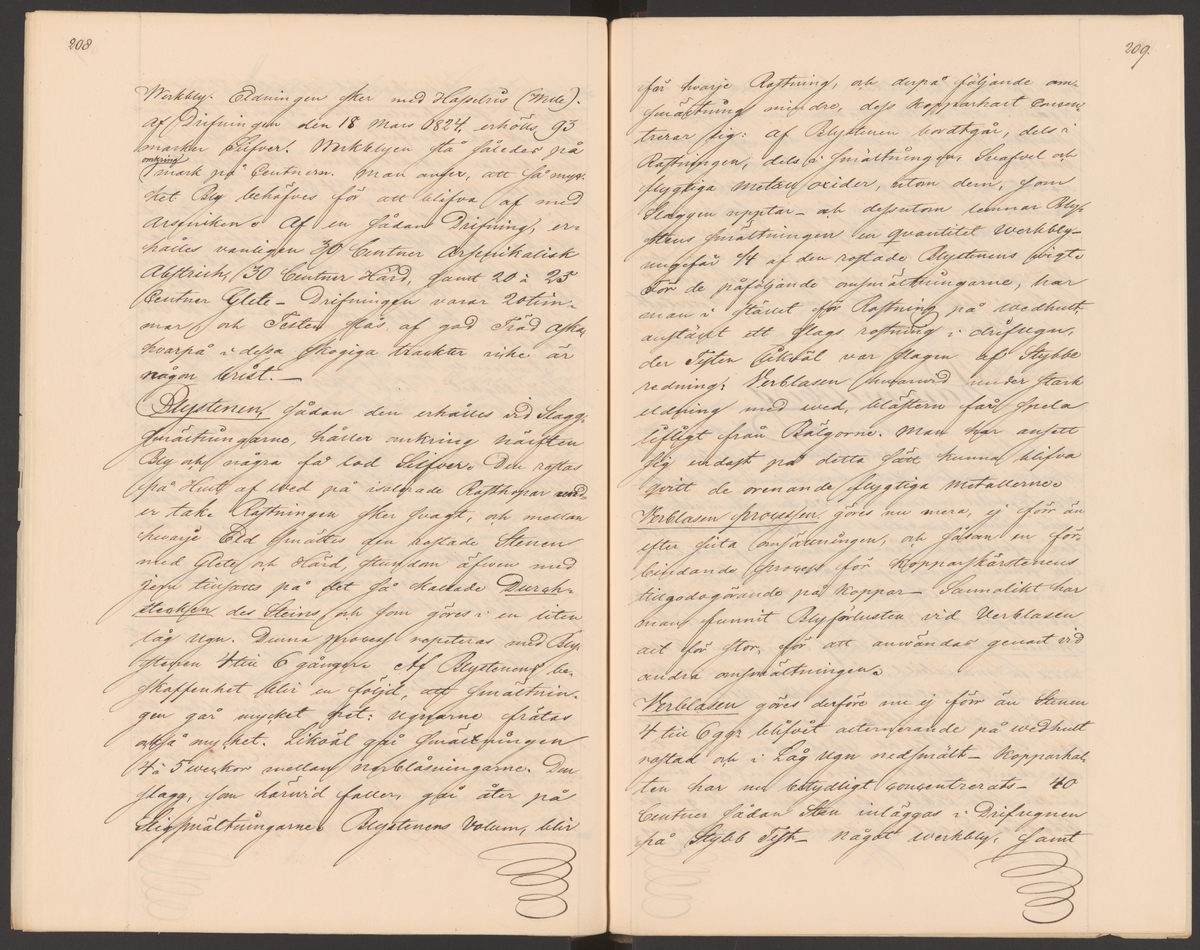 208
Werkbly. Eldningen sker med Hasselris (Wede).
Af Drifningen den 18 Mars 1824, erhölls 93
marker Silfver. Werkblyen stå således på
omkring
1 mark på Centnern. Man anser, att så myc-
ket Bly behöfves för att blifva af med
Arseniken. Af en sådan Drifning, er-
hålles vanligen 30 Centner Arsenikalisk
Abstrich, 30 Centner Härd, samt 20 à 25
Centner Glete – Drifningen varar 20 tim-
mar och Testen slås af god Träd aska,
hvarpå i dessa skogiga trackter icke är
någon brist. –
Blystenen, sådan den erhålles vid Slagg
smältningarne, håller omkring hälften
Bly och några få lod Silfver. Den rostas
på Hult af wed på isolerade Rosthopar und-
er tak. Rostningen sker svagt, och mellan
hvarje Eld smältes den rostade Stenen
med Glete och Härd, stundom äfven med
jern tillsatts på det så kallade Durch-
stechsen des Steins och som göres i en liten
låg ugn. Denna process repeteras med Bly-
stenen 4 till 6 gånger. Af Blystenens be-
skaffenhet blir en följd, att smältnin-
gen går mycket het: ugnarne frätas
också mycket. Likväl går smältningen
4 à 5 weckor mellan nerblåsningarne. Den
slagg, som härvid faller, går åter på
Sligsmältningarne. Blystenens Volum, blir
209.
för hvarje Rostning, och derpå följande om-
smältning mindre, dess kopparhalt concen-
trerar sig: af Blystenen bortgår, dels i
Rostningen, dels i smältningen, Svafvel och
flygtiga metall oxider, utom dem, som
Slaggen upptar – och dessutom lemnar Bly-
stens smältningen en qvantitet werkbly –
ungefär 1/4 af den rostade Blystenens vigt.
För de påföljande omsmältningarne, har
man i stället för Rostning på wedhult,
anstält ett slags rostning i drifugn,
der Testen likväl var slagen af Stybbe
redning: Verblasen hvarvid under stark
eldning med wed, blästern får spela
lifligt från Bälgorne. Man har ansett
sig endast på detta sätt kunna blifva
qvitt de orenande flygtiga metallerne.
Verblasen processen, göres nu mera, ej förr än
efter sista omsmältningen, och såsom en för-
bindande process för Kopparskärstenens
tillgodogörande på koppar – Sannolikt har
man funnit Blyförlusten vid Verblasen
allt för stor, för att användas genast vid
andra omsmältningen.
Verblasen göres derföre nu ej förr än Stenen
4 till 6 ggr blifvit alternerande på wedhult
rostad och i Låg ugn nedsmält – Kopparhal-
ten har nu betydligt concentrerats – 40
Centner sådan Sten inläggas i Drifugnen
på Stybb Test – något werkbly, samt